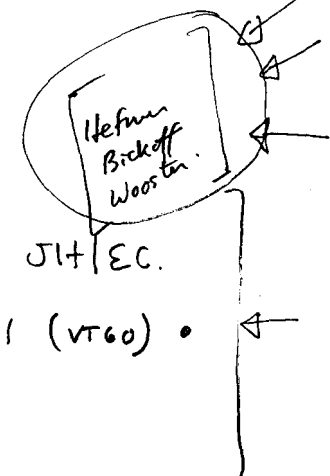 Hefner
Bickoff
Wooster.
JH EC.
1 (VT60) •